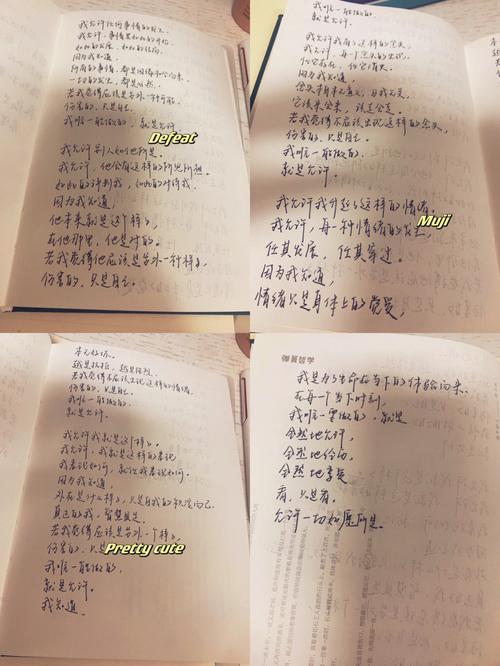 我允许任何事情的发生
我允许,事情是如此的开始
如此的发展,如此的结局
因为我知道,
所有的事情,都是因缘和合而来
一切的发生,都是必然
若我觉得应该是另外一种可能
伤害的,只是自己
我唯一能做的,就是允许
Defeat
我允许别人如他所是。
我允许,他会有这样的所思所想
如此的评判我,如此的对待我
因为我知道,
他本来就是这个样子,
在他那里,他是对的。
若我觉得他应该是另外一种样子,
伤害的,只是自己。
我唯一能做的,
就是允许。
我允许我有了这样的念头,
我允许,每一个念头的出现,
任它存在,任它消失
因为我知道,
念头本身本无意义,与我无关,
它该来会来,该走会走。
若我觉得不应该出现这样的念头,
伤害的,只是自己。
我唯一能做的,
就是允许。
我允许我升起了这样的情绪,
我允许,每一种情绪的发生,
任其发展,任其穿过。
Muji
因为我知道,
情绪只是身体上的觉受,
本无好坏。
越是抗拒,越是强烈。
若我觉得不应该出现这样的情绪,
伤害的,只是自己。
我唯一能做的,
就是允许。
我允许我就是这个样子。
我允许,我就是这样的表现
我表现如何,就任我表现如何。
因为我知道,
外在是什么样子,只是自我的积淀而已
真正的我,智慧具足。
若我觉得应该是另外一个样子,
伤害的,只是自己
Pretty cute
我唯一能做的,
就是允许。
我知道
弹簧哲学
我是为了生命在当下的体验而来。
在每一个当下时刻
我唯一要做的,就是
全然地允许,
全然地经历,
全然地享受
看,只是看。
允许一切如其所是。